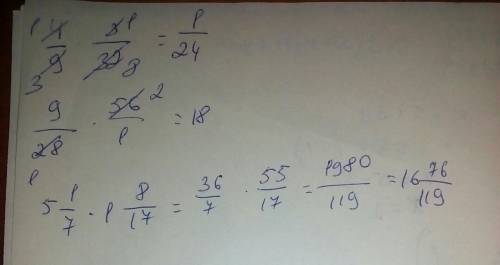 4/9 3/32 = 1/24
9/28 · 56/1 = 18
5 1/7 · 1 8/17 = 36/7 · 55/17 = 1980/119 = 16 76/119